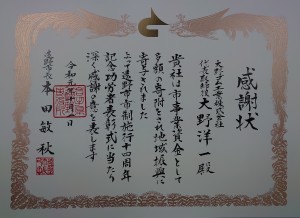 感謝状
大野工業株式会社
代表取締役 大野洋一殿
貴社は市事業資金として
多額の寄附をされ地域振興に
寄与されました
よって遠野市市制施行十四周年
記念功労者表彰式に当たり
深く感謝の意を表します
令和元年十月 日
遠野市長 本田敏秋